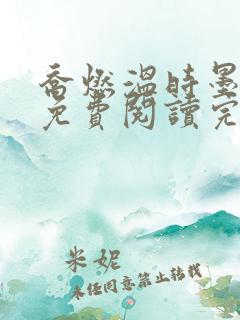 喬燃溫時墨
免費閱讀完
米妮
未任同意禁止转载